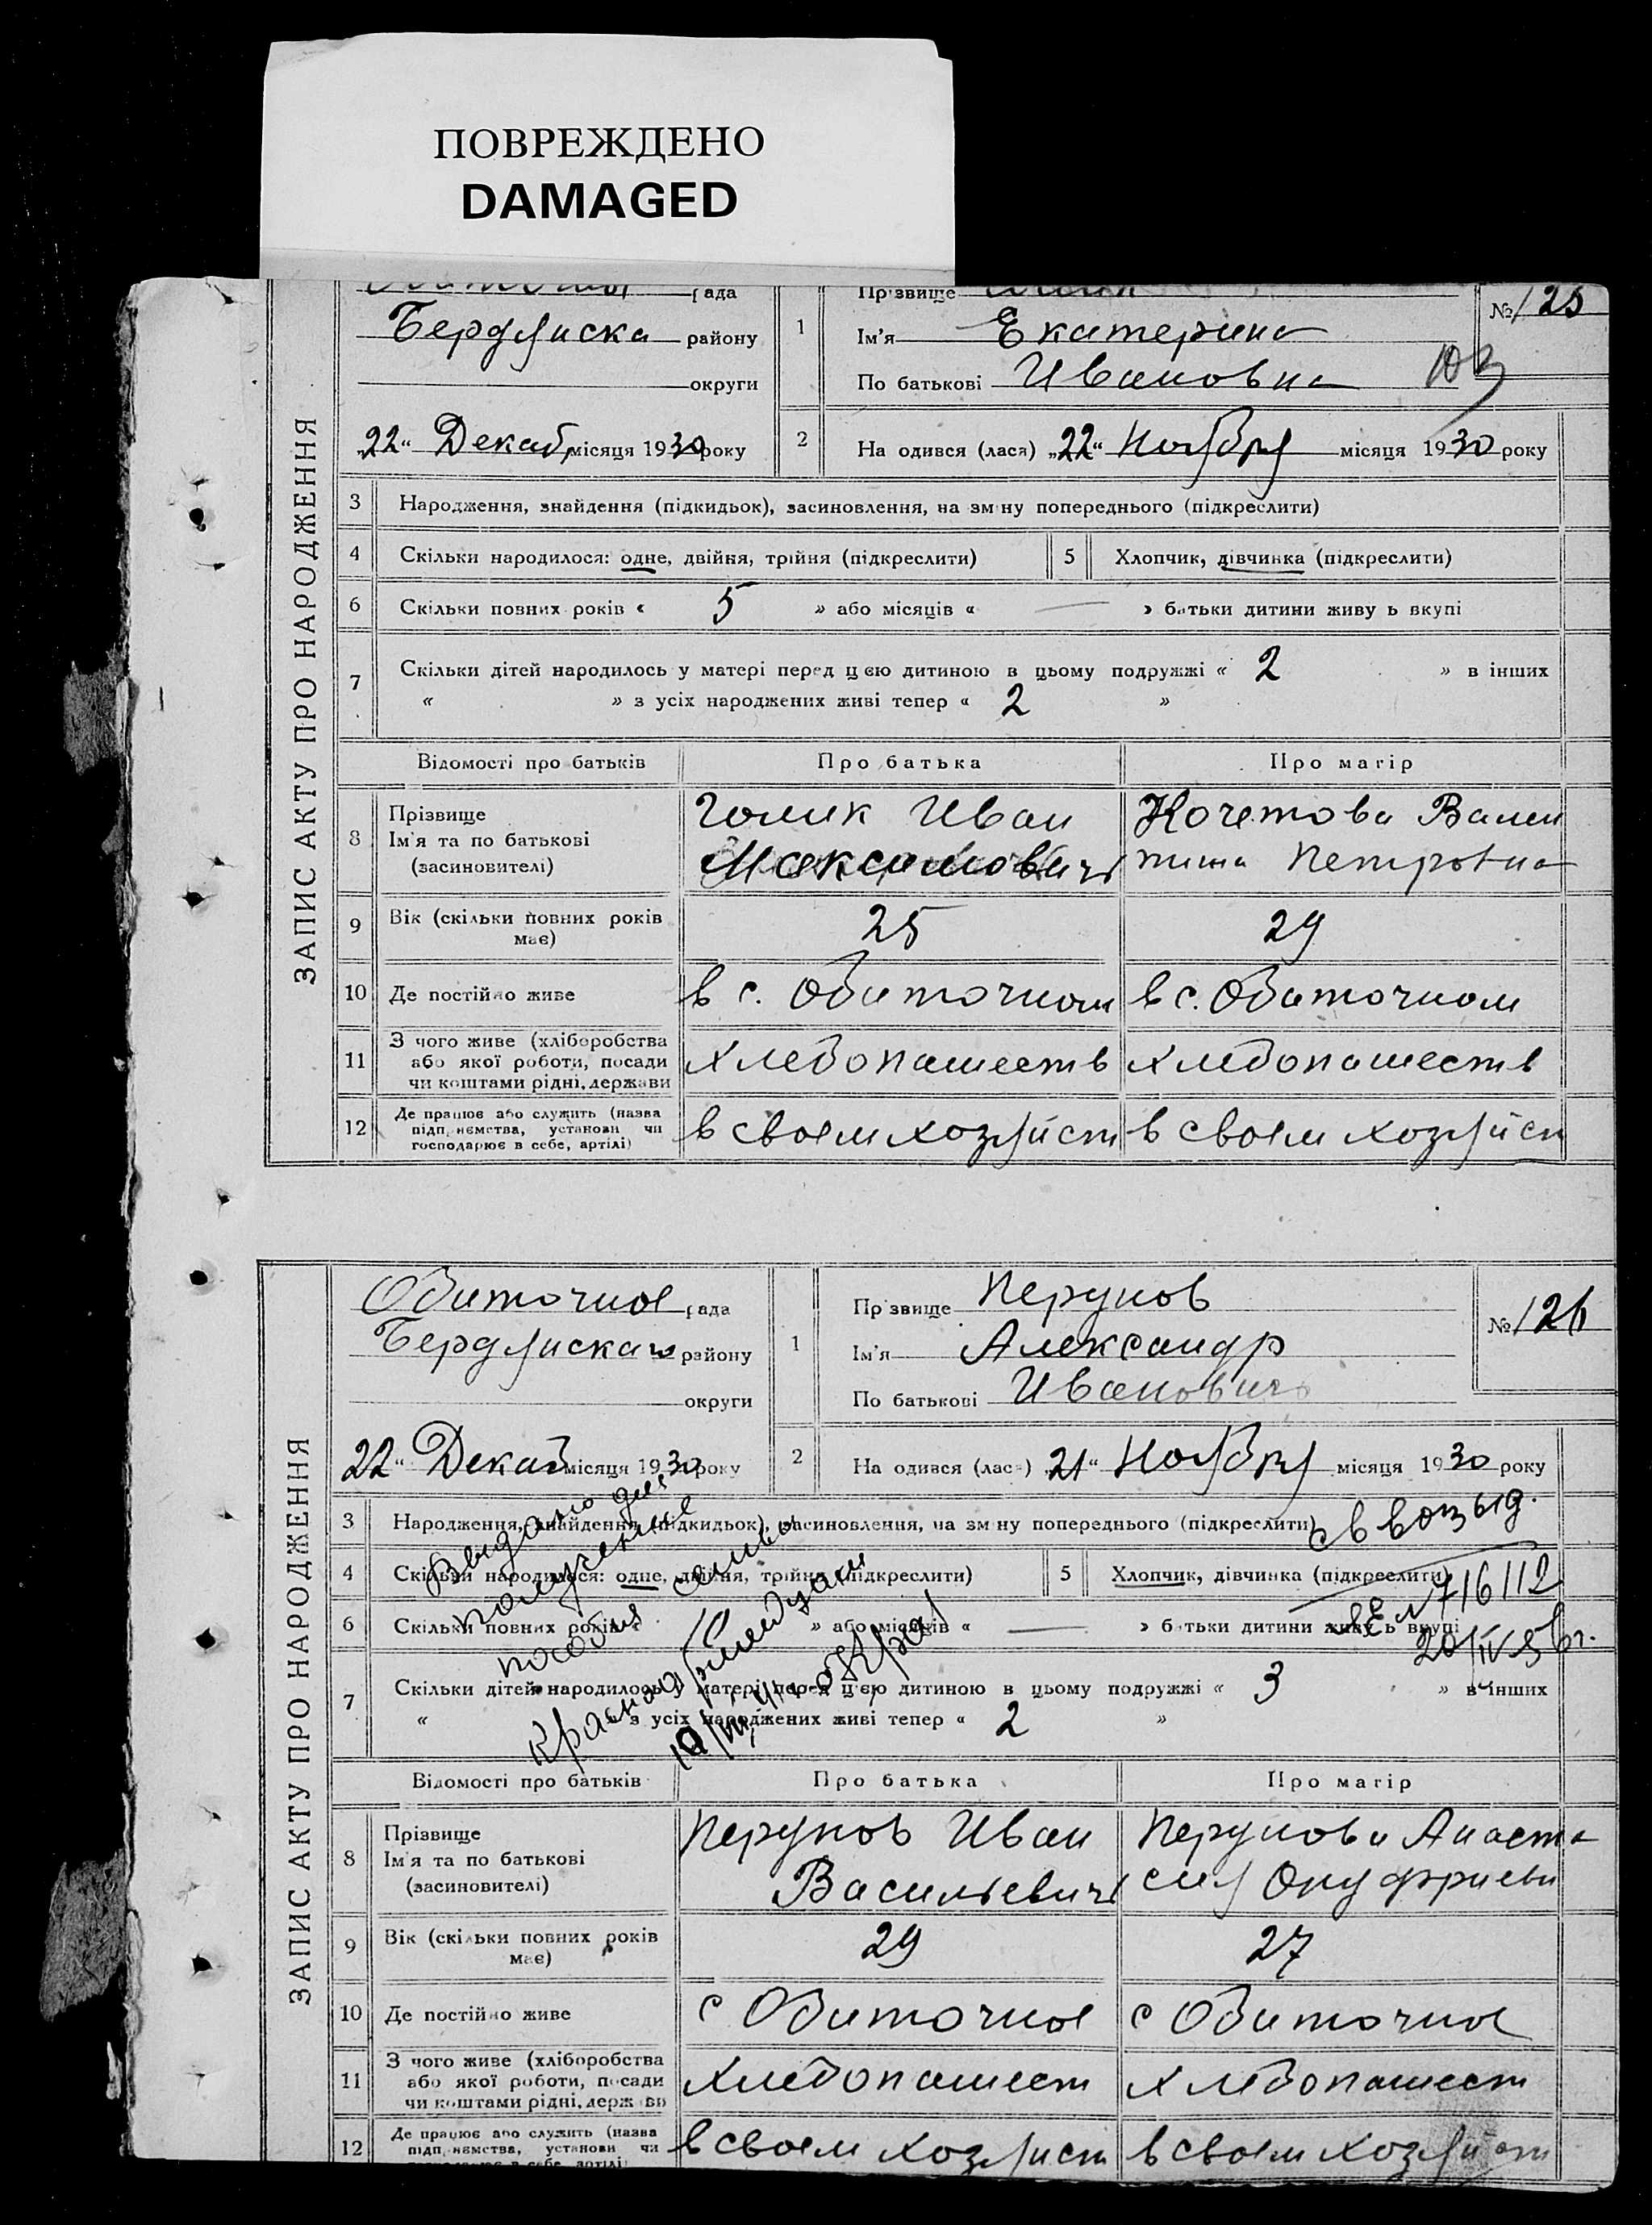 ПОВРЕЖДЕНО
DAMAGED
ЗАПИС АКТУ ПРО НАРОДЖЕННЯ
рада
Бердянска району
округи
„22“ Декаб місяця 1930 року
1
Прізвище
Ім'я Екатерина
По батькові Ивановна
№ 125
103
2
На одився (лася) „22“ Ноября місяця 1930 року
3 Народження, знайдення (підкидьок), засиновлення, на зміну попереднього (підкреслити)
4 Скільки народилося: одне, двійня, трійня (підкреслити)
5 Хлопчик, дівчинка (підкреслити)
6 Скільки повних років « 5 » або місяців « — » батьки дитини живу ь вкупі
7 Скільки дітей народилось у матері перед цією дитиною в цьому подружжі « 2 » в інших
« » з усіх народжених живі тепер « 2 »
Відомості про батьків Про батька Про матір
8 Прізвище
Ім'я та по батькові
(засиновителі)
Голик Иван
Максимович
Кочетова Вален
тина Петровна
9 Вік (скільки повних років
має)
25
29
10 Де постійно живе
в с. Обиточном
в с. Обиточном
11 З чого живе (хліборобства
або якої роботи, посади
чи коштами рідні, держави
хлебопашеств
хлебопашеств
12 Де працює або служить (назва
підприємства, установи чи
господарює в себе, артілі)
в своем хозяйст
в своем хозяйст
ЗАПИС АКТУ ПРО НАРОДЖЕННЯ
Обиточное рада
Бердянска району
округи
22“ Декаб місяця 1930 року
1
Прізвище Перунов
Ім'я Александр
По батькові Иванович
№ 126
2
На одився (лася) „21“ Ноября місяця 1930 року
3 Народження, знайдення (підкидьок), засиновлення, на зміну попереднього (підкреслити)
4 Скільки народилося: одне, двійня, трійня (підкреслити)
5 Хлопчик, дівчинка (підкреслити)
6 Скільки повних років « » або місяців « — » батьки дитини живу ь вкупі
7 Скільки дітей народилось у матері перед цією дитиною в цьому подружжі « 3 » в інших
« » з усіх народжених живі тепер « 2 »
Выдано для
получение
пособия семьи
св возыд.
№ 716112
20/IV 56г.
Відомості про батьків Про батька Про матір
8 Прізвище
Ім'я та по батькові
(засиновителі)
Перунов Иван
Васильевич
Перунова Анаста
сия Онуффриевн
9 Вік (скільки повних років
має)
29
27
10 Де постійно живе
с Обиточное
с Обиточное
11 З чого живе (хліборобства
або якої роботи, посади
чи коштами рідні, держави
хлебопашест
хлебопашест
12 Де працює або служить (назва
підприємства, установи чи
в своем хозяист
в своем хозяйст